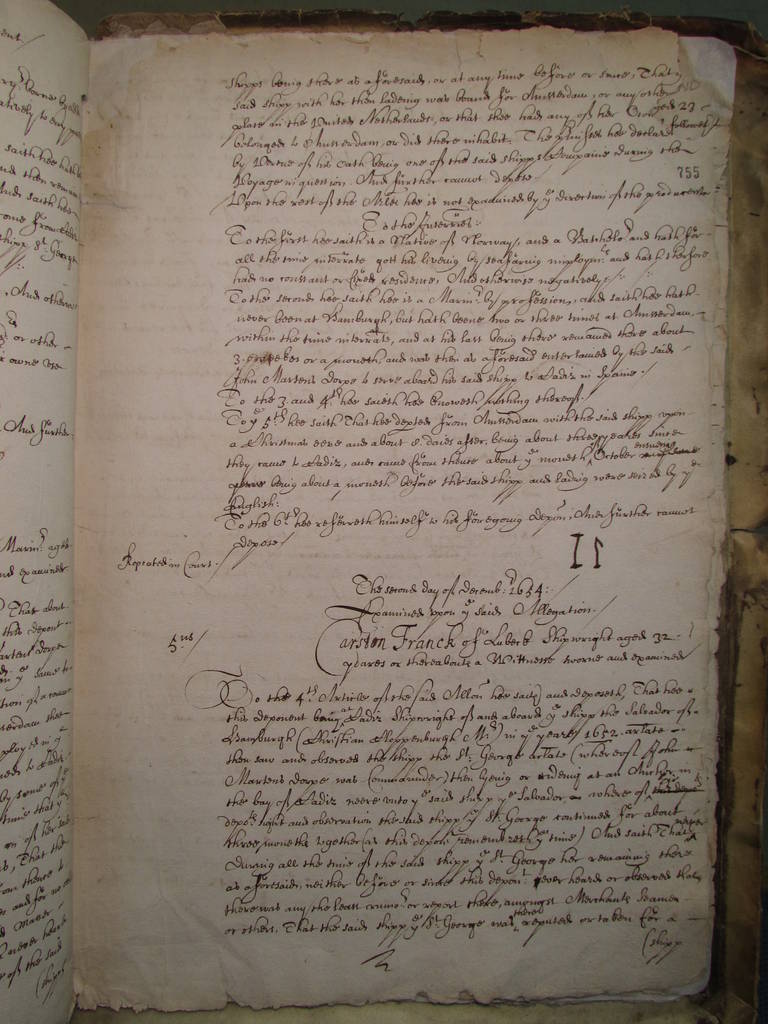 shipps being there as aforesaid, or at any time before or since, That y
said shipp with her then ladeing was bound for Amsterdam, or any other
place in the United Netherlands, or that shee had any of her
belonged to Amsterdam, or did there inhabit. The hee declareth
by vertue of his oath being one of the said shipps Companie during the
Voyage in question. And further cannot depose
755
Upon the rest of the Allen hee is not examined by ye direction of the producent
To the Interries:
To the first hee saith is a Native of Norway, and a Batchelor and hath for
all the time interrate gott his liveing by seafaring imploymt and hath therfore
had no constant or fixed residence, And otherwise negatively
To the second hee saith hee is a Marinr by profession, and saith hee hath
never been at Hamburgh, but hath beene two or three times at Amsterdam,
within the time interrate, and at his last being there remained there about
3 weekes or a moneth, and was then as aforesaid entertained by the said
John Martens Dorpe to serve aboard his said shipp to Cadiz in Spaine
To the 3 and 4th hee saieth hee knoweth nothing thereof
To ye 5th hee saith That hee depted from Amsterdam with the said shipp upon
a Christmas eeve and about 8 daies after, being about three yeares since
they came to Cadiz, and came from thence about ye moneth October ensueing
being about a moneth before the said shipp and ladeing were seized by ye
English:
To the 6th hee referreth himselfe to his foregoing depon, And further cannot
depose
Repeated in Court.
The second day of Decembr 1654:
Examined upon ye said Allegation.
5us
Carsten Franck of Lubeck Shipwright aged 32
yeares or thereabouts a Wittnesse sworne and examined
To the 4th Article of the said Allon hee saith and deposeth, That hee
this deponent being at Cadiz Shipwright of and aboard ye shipp the Salvador of
Hamburgh (Christian Kloppenburgh Mr) in ye yeare 1652 arlate
then saw and observed the shipp the St: George arlate (whereof John
Martens Dorpe was Commander) then lyeing or rideing at an Anchor in
the bay of Cadiz neere unto ye said shipp ye Salvador, where of
depots sight and observation the said shipp ye St George continued for about
three moneths together (as this depont remembreth ye time) And saith That
During all the time of the said shipp ye St George her remaining there
as aforesaid, neither before or since this depont ever heard or observed that
there was any the least rumor or report there, amongst Merchants Seamen
or others, That the said shipp ye St George was there reputed or taken for a
shipp